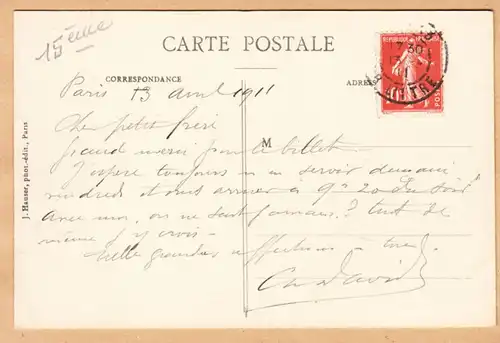 15ème
CARTE POSTALE
CORRESPONDANCE
ADRES
Paris 13 avril 1911
Cher petit frère
grand merci pour le billet
M
J'espère toujours m'en servir demain
vendredi et nous arriver à 9h 20 du soir
Avec moi, on ne sait jamais? tout de
même j'y crois
Mille grandes affections à tous
Ch David
J. Hauser, phot.-édit., Paris
30
10
POS